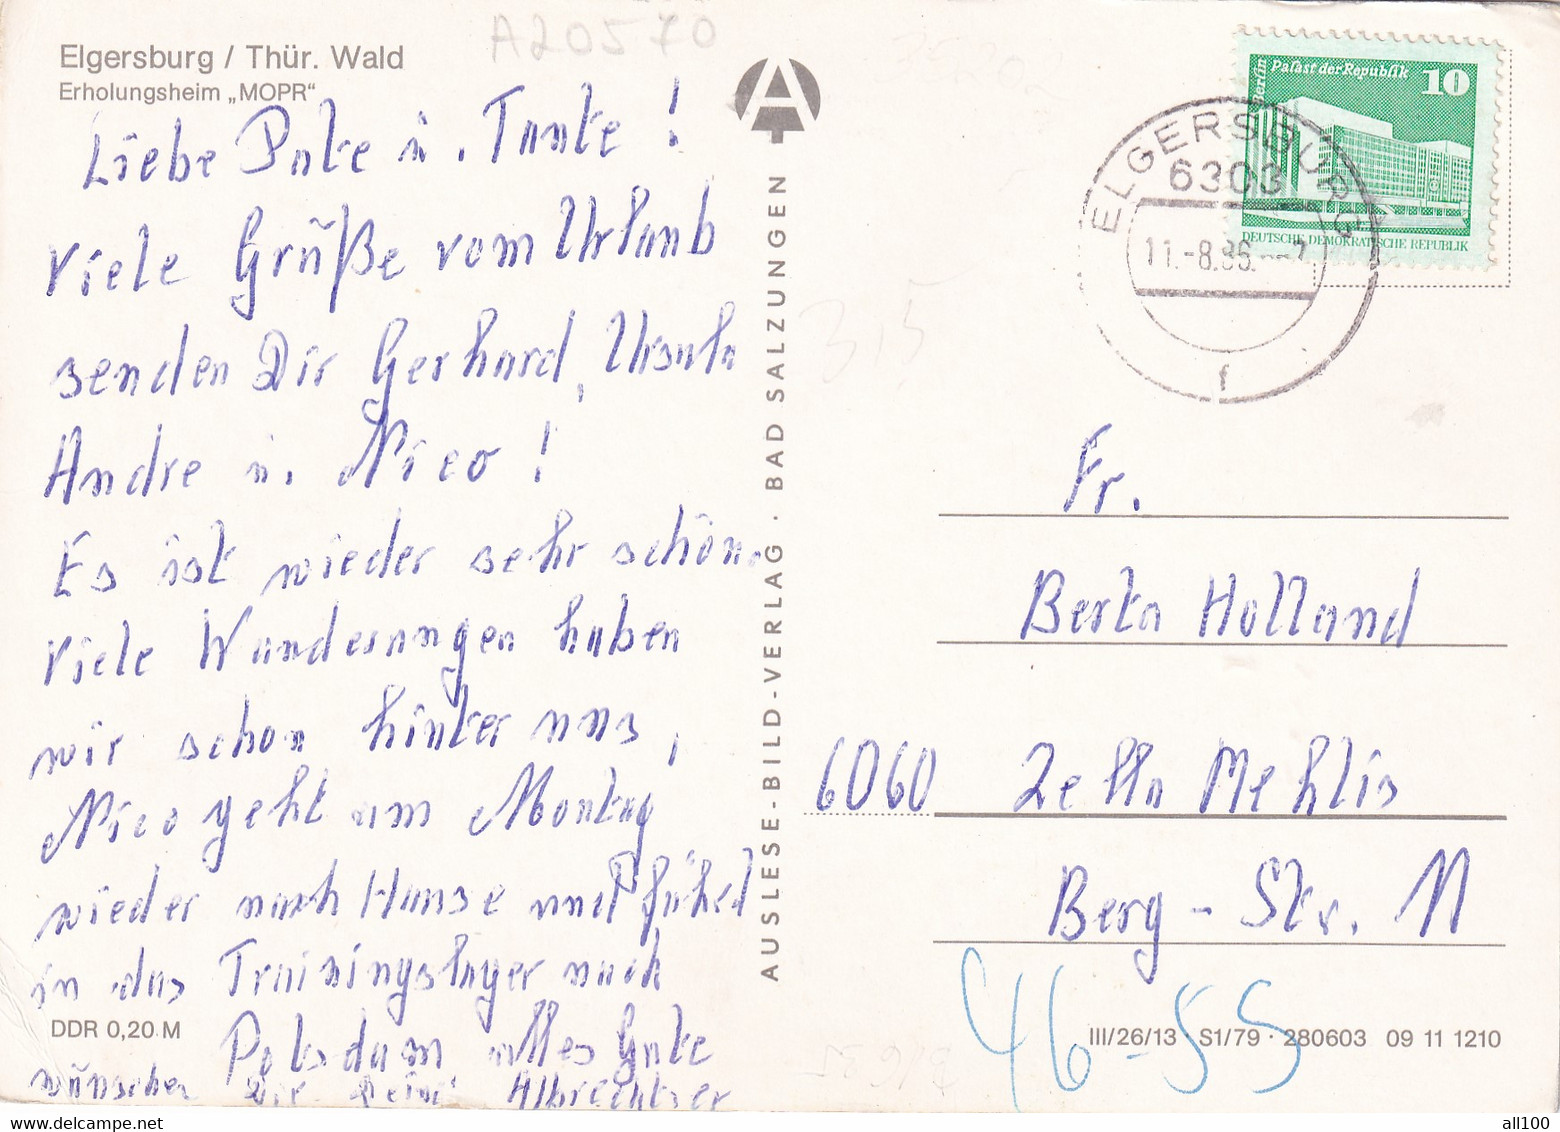 A20570
Elgersburg / Thür. Wald
Erholungsheim „MOPR“
Liebe Pate u. Tante !
Viele Grüße vom Urlaub
senden Dir Gerhard, Ursula
Andre u. Nico !
Es ist wieder sehr schön.
Viele Wanderungen haben
wir schon hinter uns,
Nico geht am Montag
wieder nach Hause und fährt
in das Trainingslager nach
Potsdam alles Gute
wünschen Dir Deine Albrechtser
DDR 0,20 M
AUSLESE-BILD-VERLAG · BAD SALZUNGEN
Berlin Palast der Republik 10
DEUTSCHE DEMOKRATISCHE REPUBLIK
ELGERSBURG
6303
11.-8.86.
f
315
Fr.
Berta Holland
6060 Zella Mehlis
Berg-Str. 11
46-55
III/26/13 · S1/79 · 280603 09 11 1210
all100